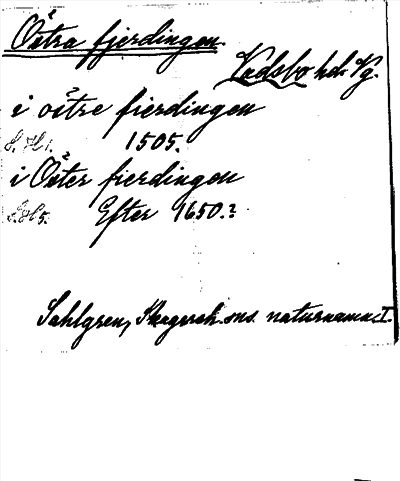 Östra fjerdingen.
Vadsbo hd. Vg.
i oſtre fierdingen
S. H 1. 1505.
i Öster fierdingen
S. H 5. Efter 1650.?
Sahlgren, Skagersh. sns. naturnamn: I.